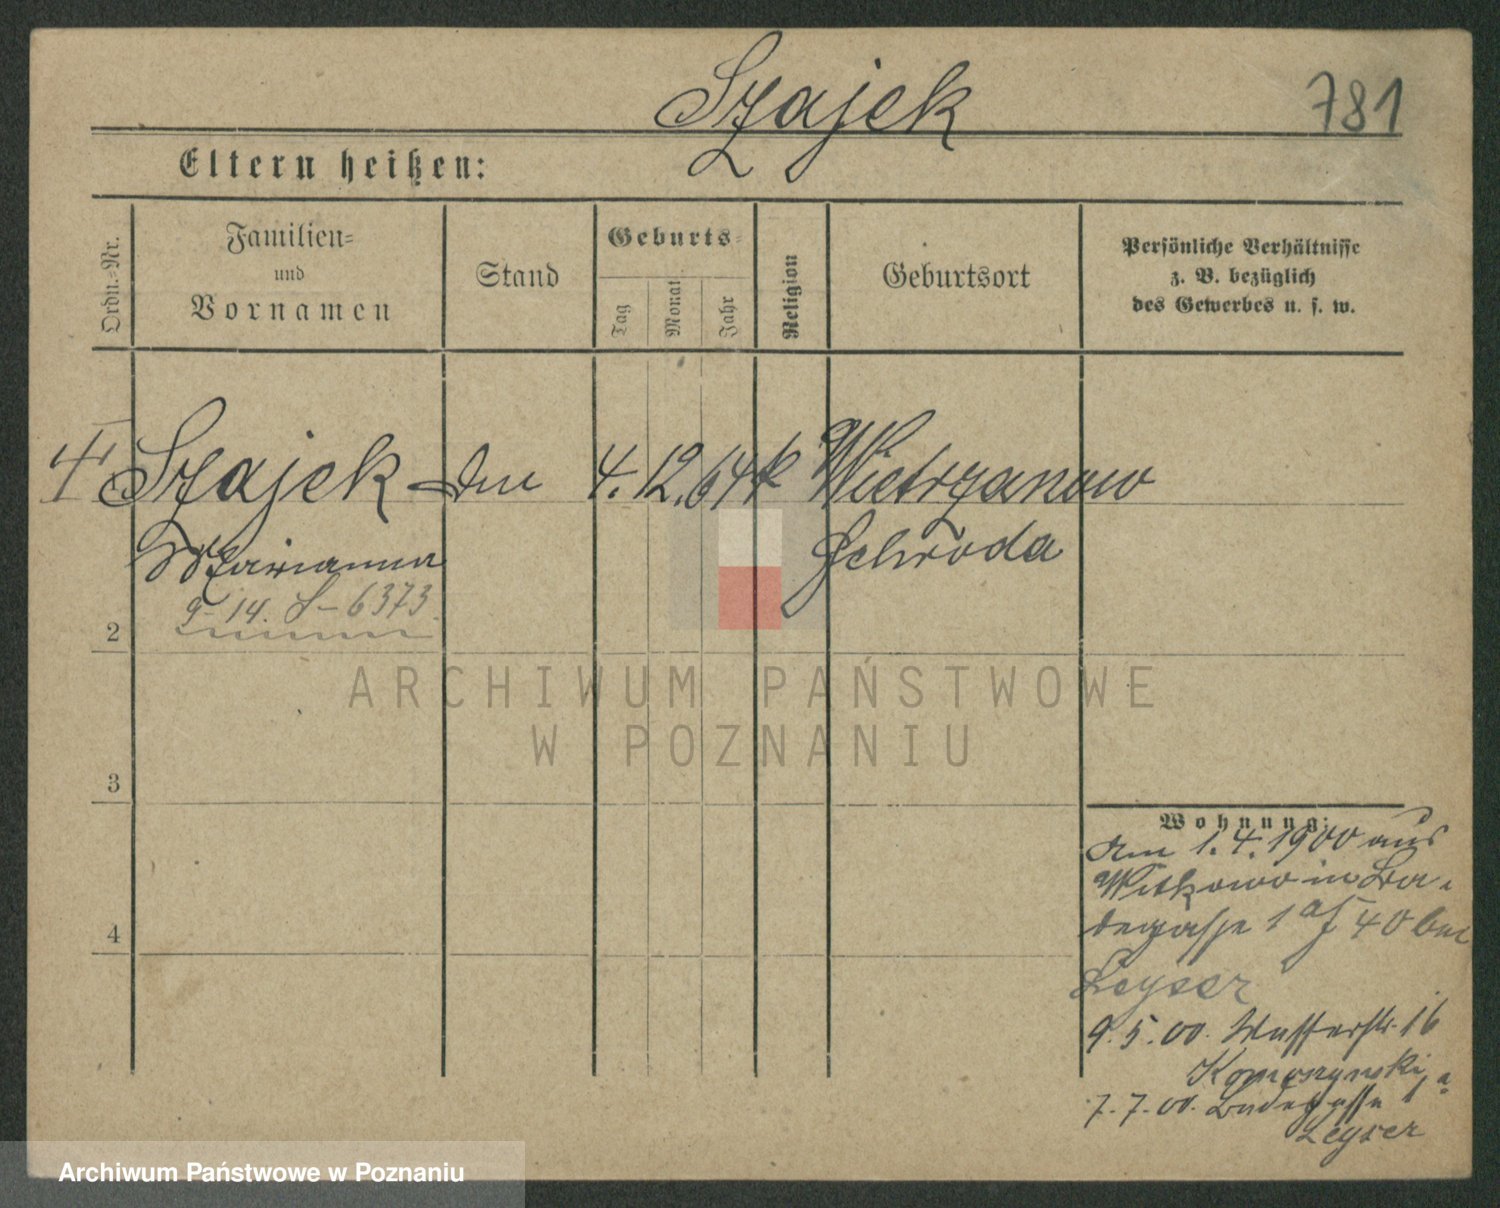 Szajek
781
Eltern heißen:
Ordn.-Nr.
Familien-
und
Vornamen
Stand
Geburts-
Tag
Monat
Jahr
Religion
Geburtsort
Persönliche Verhältnisse
z. B. bezüglich
des Gewerbes u. s. w.
Szajek
4. 12. 64 k Wietrzanowo
Marianna
Schroda
9-14. S-6373.
2
ARCHIWUM PAŃSTWOWE
W POZNANIU
3
4
Wohnung:
Am 1. 4. 1900 aus
Witkowo in Ba-
degasse 1a 40 bei
Leyser
9. 5. 00. Wasserstr. 16
7. 7. 00. Badegasse 1a
Leyser
Archiwum Państwowe w Poznaniu